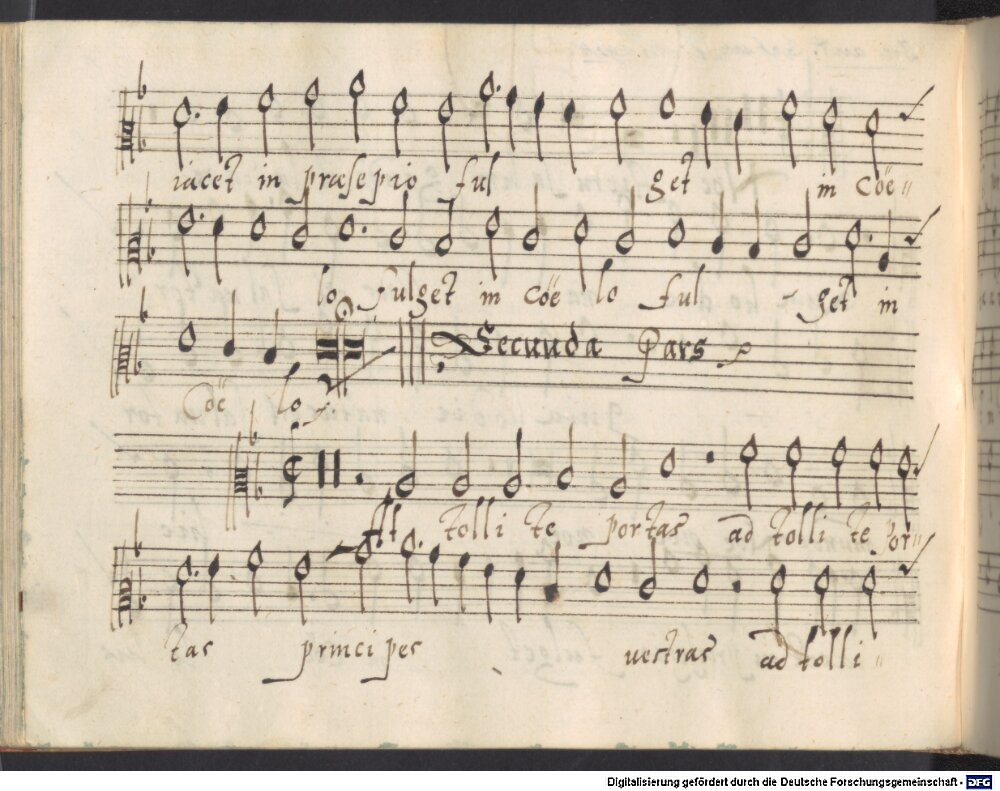 iacet in præsepio ful get in Cöe
lo fulget in Cöe lo ful get in
Secunda Pars
Cöe lo
At tolli te portas ad tolli te por
tas principes vestras ad tolli
Digitalisierung gefördert durch die Deutsche Forschungsgemeinschaft - DFG